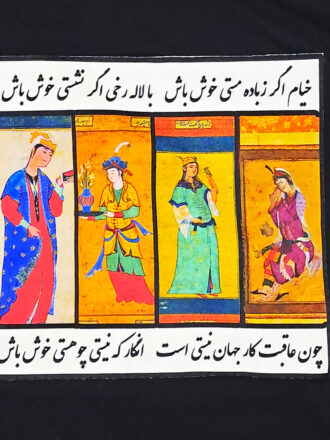 خیام اگر ز باده مستی خوش باش   با لاله رخی اگر نشستی خوش باش
چون عاقبت کار جهان نیستی است   انگار که نیستی چو هستی خوش باش